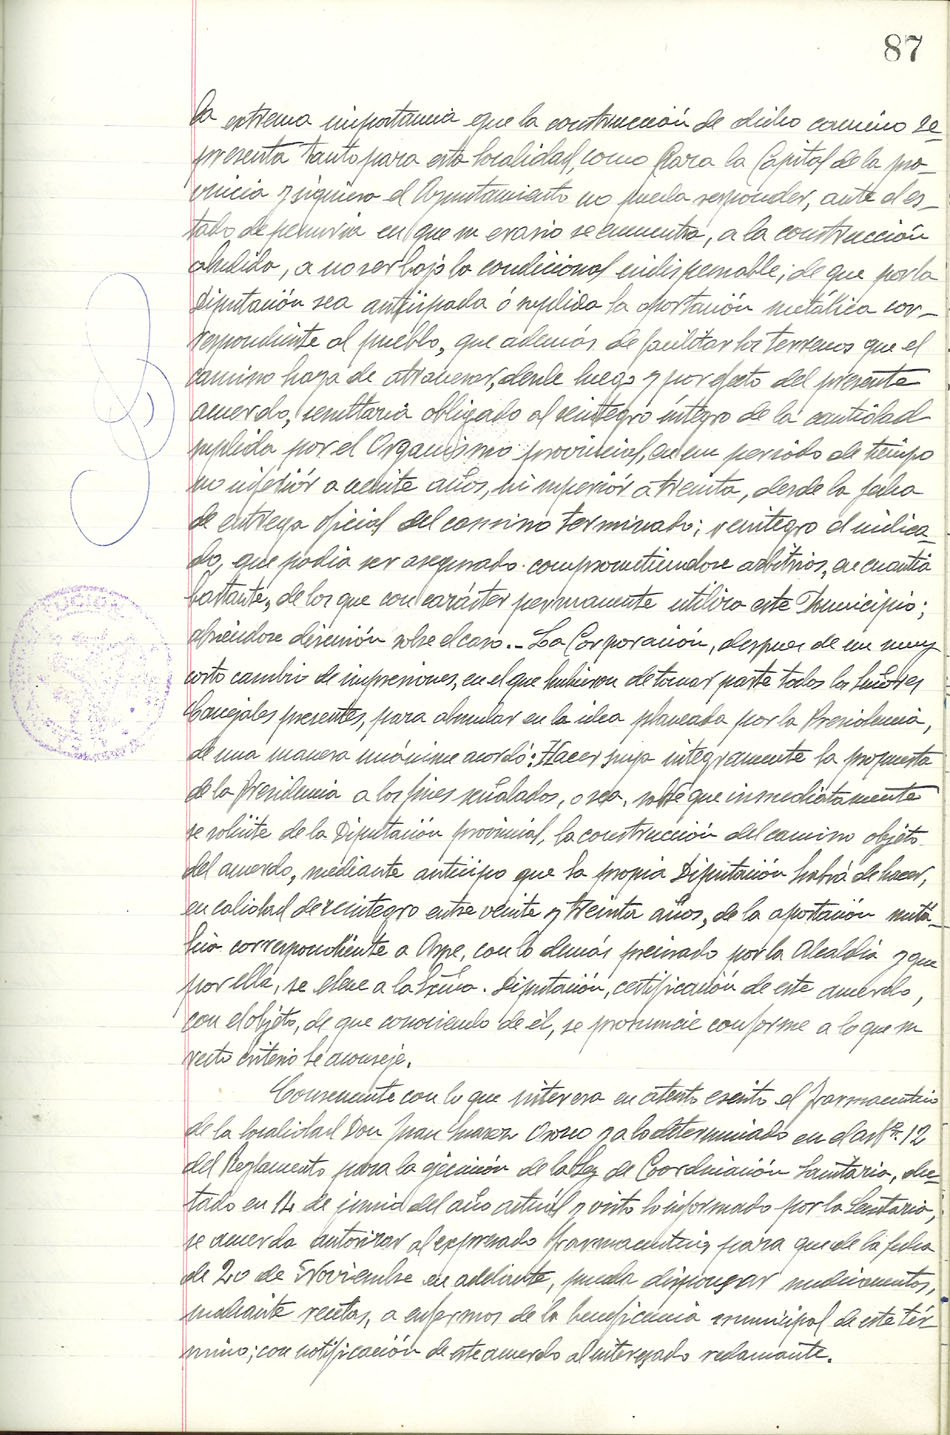 87
la extrema importancia que la construcción de dicho camino re-
presenta tanto para esta localidad, como para la Capital de la pro-
vincia y siquiera el Ayuntamiento no pueda responder, ante el es-
tado de penuria en que su erario se encuentra, a la construcción
aludida, a no ser bajo la condicional indispensable; de que por la
Diputación sea anticipada ó suplida la aportación metálica cor-
respondiente al pueblo, que además de facilitar los terrenos que el
camino haya de atravesar, desde luego y por efecto del presente
acuerdo, remitaría obligado al reintegro íntegro de la cantidad
suplida por el Organismo provincial, en un periodo de tiempo
no inferiór a veinte años, ni superiór a treinta, desde la fecha
de entrega oficial del camino terminado; reintegro el indica-
do, que podia ser asegurado comprometiendose arbitrios, en cuantia
bastante, de los que con carácter permanente utiliza este Municipio;
abriendose discusión sobre el caso.- La Corporación, despues de un muy
corto cambio de impresiones, en el que hubieron de tomar parte todos los Señores
Concejales presentes, para abundar en la idea planeada por la Presidencia,
de una manera unánime acordó: Hacer suya integramente la propuesta
de la Presidencia a los fines señalados, o sea, que inmediatamente
se solicite de la Diputación provincial, la construcción del camino objeto
del acuerdo, mediante anticipo que la propia Diputación habrá de hacer,
en calidad de reintegro entre veinte y treinta años, de la aportación metá-
lica correspondiente a Aspe, con lo demás precisado por la Alcaldía y que
por ella, se eleve a la Excma. Diputación, certificación de este acuerdo,
con el objeto, de que conociendo de él, se pronuncie conforme a lo que su
recto criterio le aconseje.
Consecuente con lo que interesa en atento escrito el farmaceutico
de la localidad Don Juan y a lo determinado en el artº. 12
del Reglamento para la ejecución de la Ley de Coordinación Sanitaria, dic-
tado en 14 de junio del año actuál y visto lo informado por la Sanitaria,
se acuerda autorizar al expresado farmaceutico, para que de la fecha
de 20 de Noviembre en adelante, pueda dispensar medicamentos,
mediante recetas, a enfermos de la beneficencia municipal de este tér-
mino; con notificación de este acuerdo al interesado reclamante.